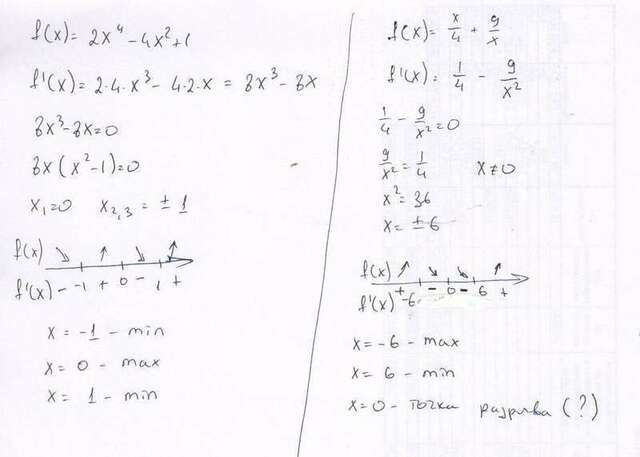 f(x) = 2x⁴ - 4x² + 1
f'(x) = 2·4·x³ - 4·2·x = 8x³ - 8x
8x³ - 8x = 0
8x(x² - 1) = 0
x₁ = 0 x₂,₃ = ± 1
f(x) ↘ ↑ ↘ ↑
f'(x) - -1 + 0 - 1 +
x = -1 - min
x = 0 - max
x = 1 - min
f(x) = x/4 + 9/x
f'(x) = 1/4 - 9/x²
1/4 - 9/x² = 0
9/x² = 1/4 x ≠ 0
x² = 36
x = ± 6
f(x) ↗ ↘ ↘ ↑
f'(x) + -6 - 0 - 6 +
x = -6 - max
x = 6 - min
x = 0 - точка разрыва (?)